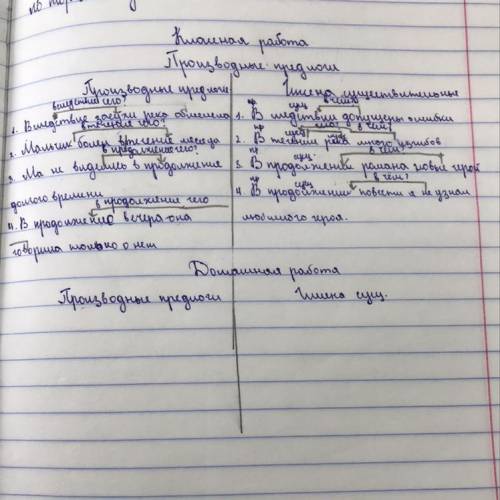 Классная работа
Производные предлоги
Производные предлоги
вследствие чего?
1. Вследствие засухи река обмелела
в течение чего?
2. Мальчик болел в течение месяца
в продолжение чего?
3. Мы не виделись в продолжение
долгого времени
в продолжение чего
4. В продолжение вечера она
говорила только о нет
Имена существительные
пр сущ в чём?
1. В следствии допущены ошибки
пр сущ в чём?
2. В течении реки много изгибов
пр. сущ. в чём?
3. В продолжении романа новые герои
пр сущ в чём?
4. В продолжении повести я не узнал
любимого героя.
Домашняя работа
Производные предлоги
Имена сущ.